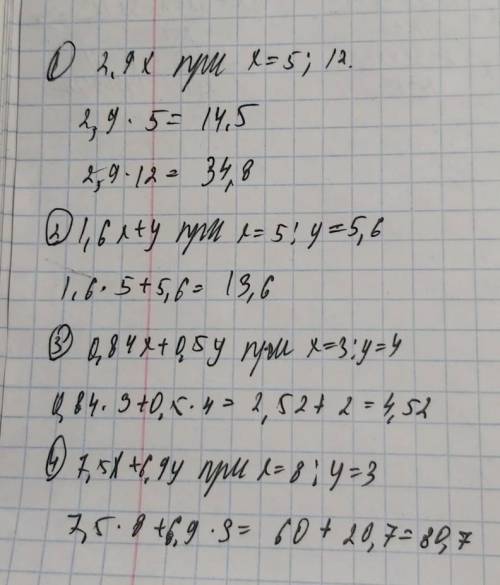 ① 2,9x при x=5; 12.
2,9 · 5 = 14,5
2,9 · 12 = 34,8
② 1,6x+y при x=5; y=5,6
1,6 · 5 + 5,6 = 13,6
③ 0,84x+0,5y при x=3; y=4
0,84 · 3 + 0,5 · 4 = 2,52 + 2 = 4,52
④ 7,5x+6,9y при x=8; y=3
7,5 · 8 + 6,9 · 3 = 60 + 20,7 = 80,7